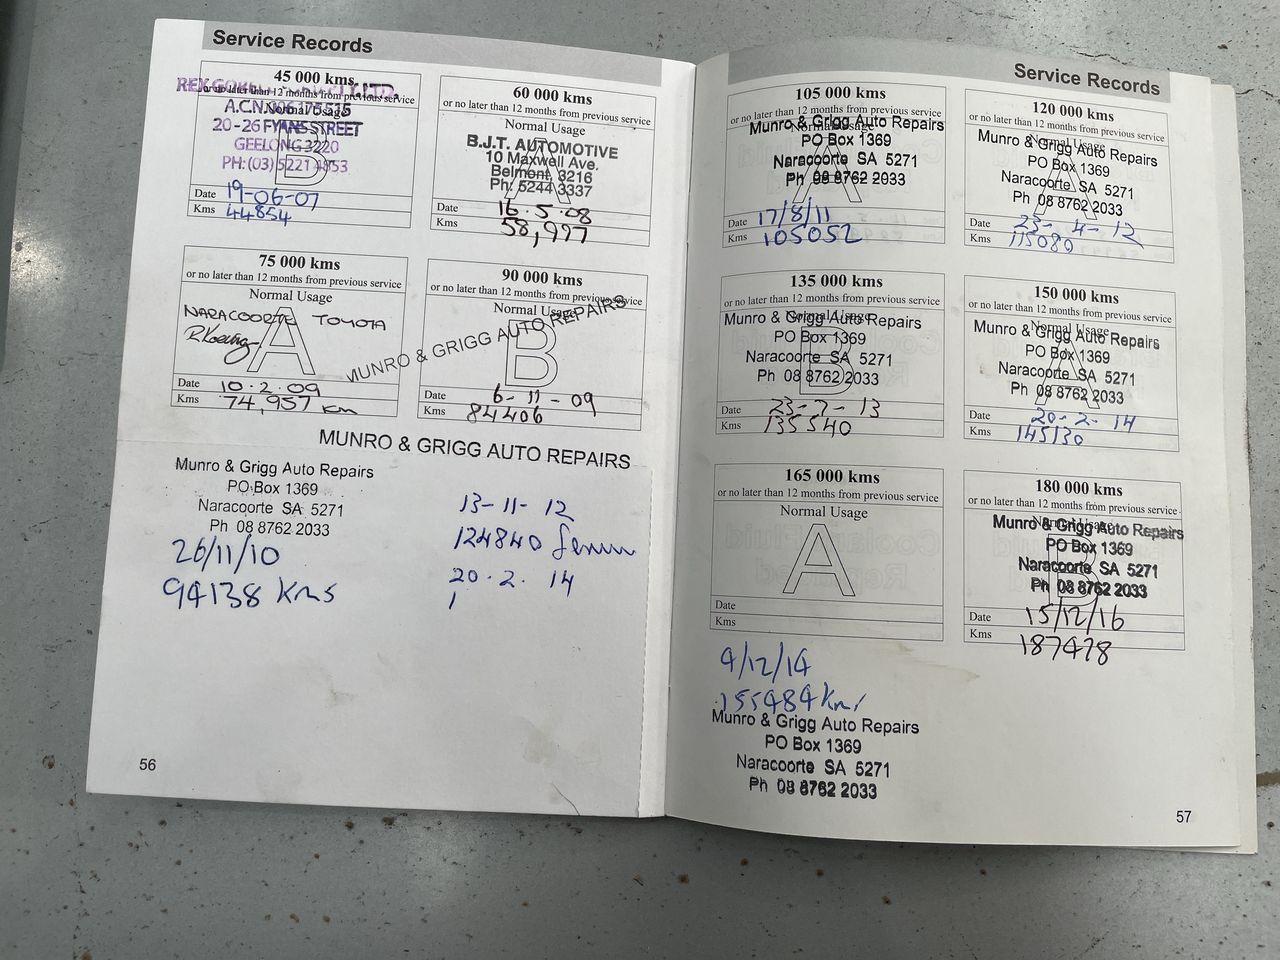 Service Records
45 000 kms
or no later than 12 months from previous service
Normal Usage
A.C.N. 006 175 515
20-26 FYANS STREET
GEELONG 3220
PH: (03) 5221 4853
B
Date 19-06-07
Kms 44854
60 000 kms
or no later than 12 months from previous service
Normal Usage
A
B.J.T. AUTOMOTIVE
10 Maxwell Ave.
Belmont, 3216
Ph: 5244 3337
Date 16.5.08
Kms 58,997
75 000 kms
or no later than 12 months from previous service
Normal Usage
NARACOORTE TOYOTA
A
Date 10.2.09
Kms 74,957 km
90 000 kms
or no later than 12 months from previous service
Normal Usage
B
MUNRO & GRIGG AUTO REPAIRS
Date 6-11-09
Kms 84406
MUNRO & GRIGG AUTO REPAIRS
Munro & Grigg Auto Repairs
PO Box 1369
Naracoorte SA 5271
Ph 08 8762 2033
26/11/10
94138 Kms
13-11-12
124840
20.2.14
56
Service Records
105 000 kms
or no later than 12 months from previous service
Normal Usage
A
Munro & Grigg Auto Repairs
PO Box 1369
Naracoorte SA 5271
Ph 08 8762 2033
Date 17/8/11
Kms 105052
120 000 kms
or no later than 12 months from previous service
Normal Usage
A
Munro & Grigg Auto Repairs
PO Box 1369
Naracoorte SA 5271
Ph 08 8762 2033
Date 23-4-12
Kms 115080
135 000 kms
or no later than 12 months from previous service
Normal Usage
B
Munro & Grigg Auto Repairs
PO Box 1369
Naracoorte SA 5271
Ph 08 8762 2033
Date 23-7-13
Kms 135540
150 000 kms
or no later than 12 months from previous service
Normal Usage
A
Munro & Grigg Auto Repairs
PO Box 1369
Naracoorte SA 5271
Ph 08 8762 2033
Date 20-2-14
Kms 145130
165 000 kms
or no later than 12 months from previous service
Normal Usage
A
Date
Kms
180 000 kms
or no later than 12 months from previous service
Normal Usage
B
Munro & Grigg Auto Repairs
PO Box 1369
Naracoorte SA 5271
Ph 08 8762 2033
Date 15/12/16
Kms 187478
9/12/14
155484 km
Munro & Grigg Auto Repairs
PO Box 1369
Naracoorte SA 5271
Ph 08 8762 2033
57